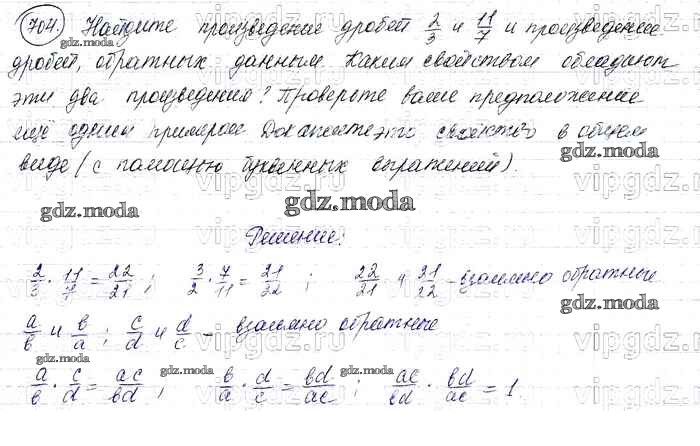 704. Найдите произведение дробей 2/3 и 11/7 и произведение
дробей, обратных данным. Каким свойством обладают
эти два произведения? Проверьте ваше предположение
ещё одним примером. Докажите это свойство в общем
виде (с помощью буквенных выражений).
gdz.moda
Решение:
2/3 · 11/7 = 22/21 ; 3/2 · 7/11 = 21/22 ; 22/21 и 21/22 - взаимно обратные
a/b и b/a ; c/d и d/c - взаимно обратные
a/b · c/d = ac/bd ; b/a · d/c = bd/ac ; ac/bd · bd/ac = 1.